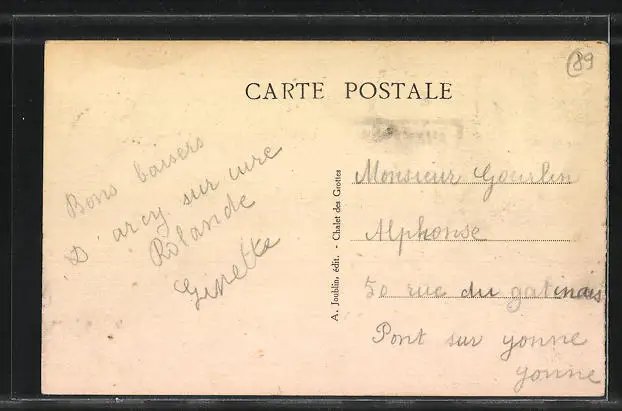 89
CARTE POSTALE
Bons baisers
D'arcy sur cure
Rolande
Ginette
A. Joublin, édit. - Chalet des Grottes
Monsieur Gourlin
Alphonse
50 rue du gatinais
Pont sur yonne
yonne